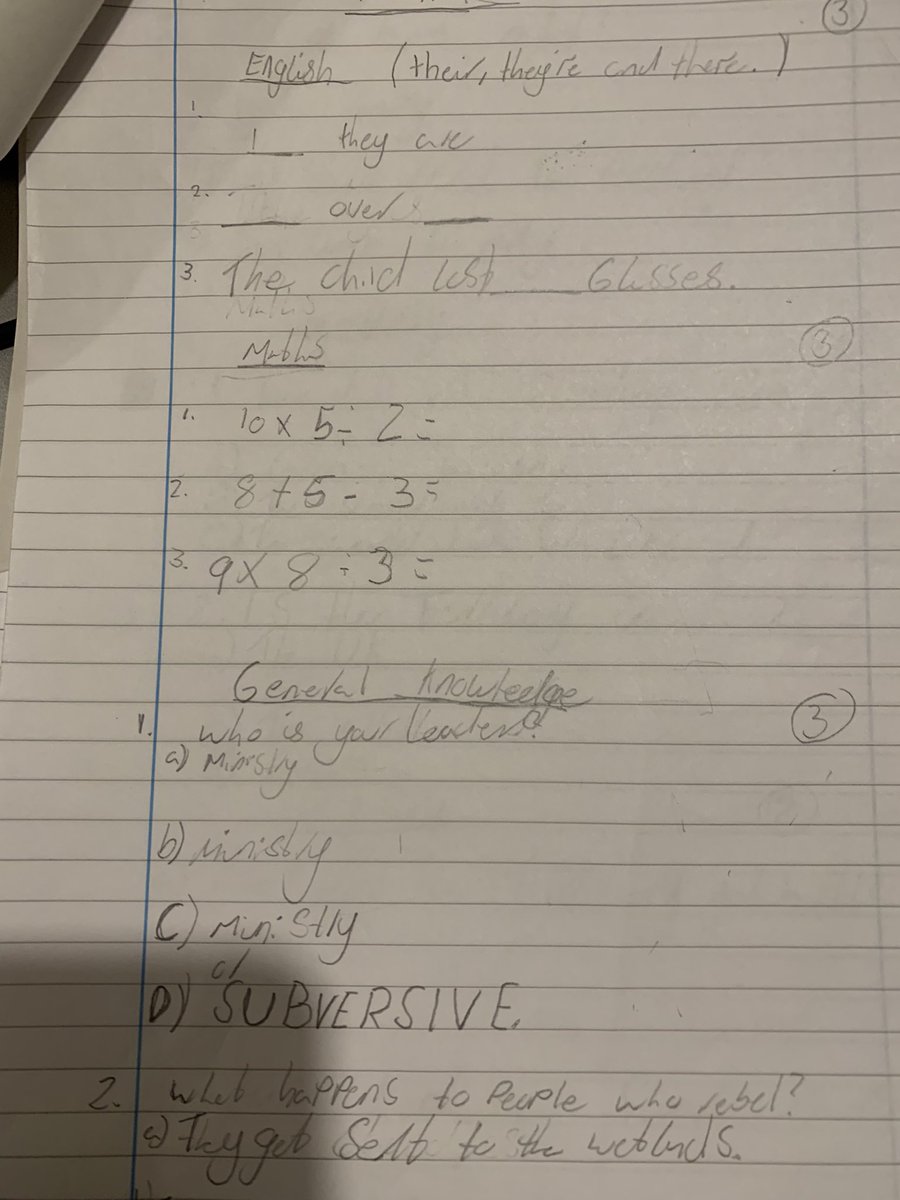 3
English (their, they're and there.)
1.
1 ___ they are
2. ___ over ___
3. The child lost ___ Glasses.
Maths
Maths 3
1. 10 x 5 ÷ 2 =
2. 8 + 5 - 3 =
3. 9 x 8 ÷ 3 =
General Knowledge
1. who is your leader? 3
a) Ministry
b) Ministry
C) Ministry
or
D) SUBVERSIVE.
2. what happens to people who rebel?
a) They get Sent to the wetlands.